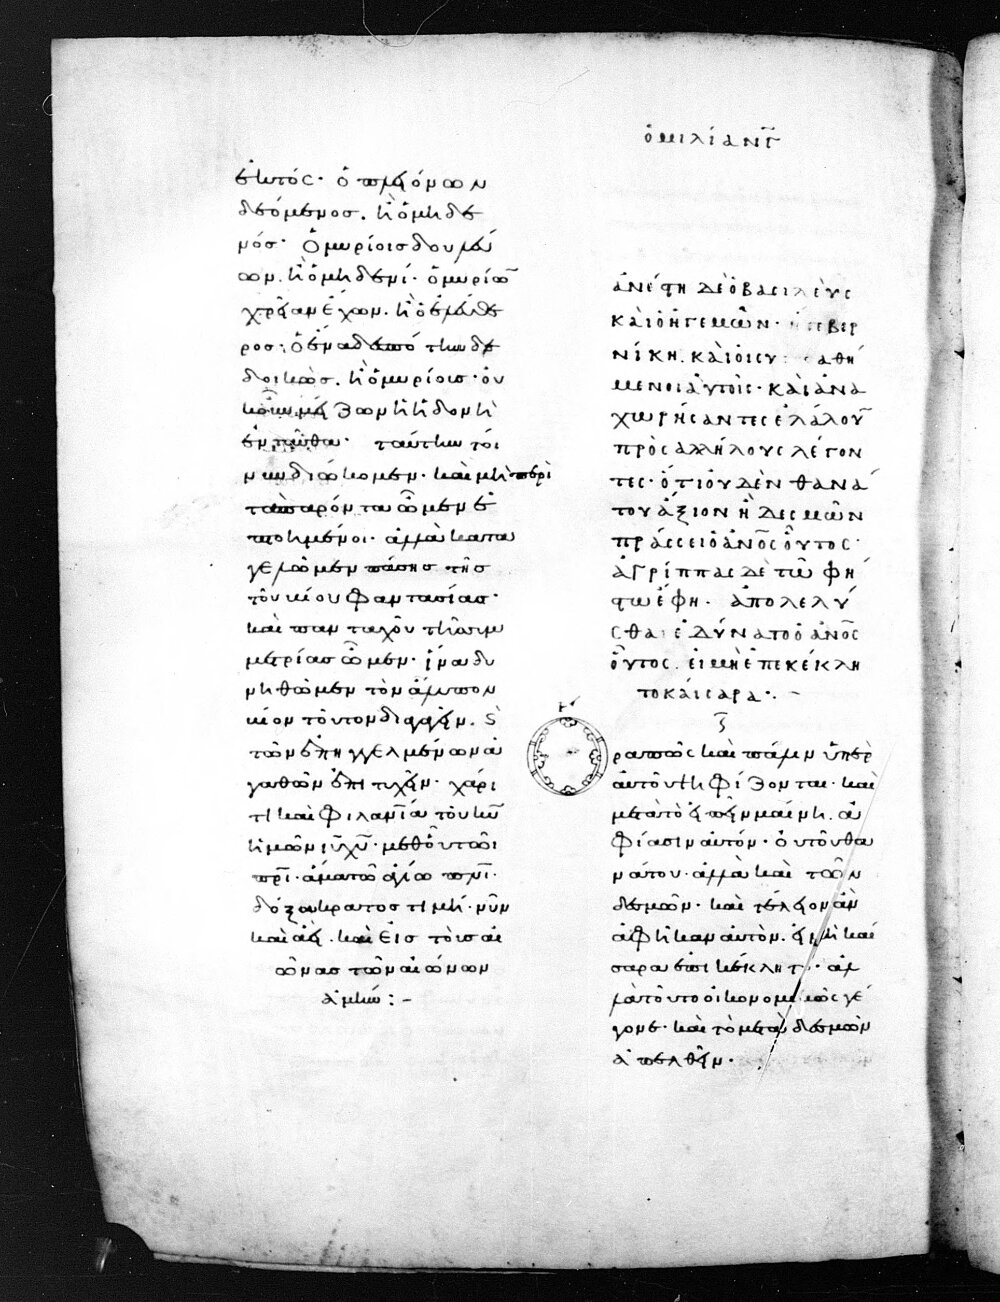 ὁμιλία νγ
ἐντός· ὁ πλειόνων
δεόμενος. ἢ ὁ μηδε
νός· Ὁ μυρίοις δουλεύ
ων. ἢ ὁ μηδενί· ὁ μυρίων
χρείαν ἔχων. ἢ ὁ ἐλεύθε
ρος· Ὁ ἕνα δεσπότην δε
δοικὼς. ἢ ὁ μυρίοις· οὐ
μείζων ἡ ἡδονὴ
ἐνταῦθα· ταύτην τοί
νυν διώκομεν· καὶ μὴ περὶ
τὰ παρόντα ὦμεν ἐ
πτοημένοι· ἀλλὰ κατα
γελῶμεν πάσης τῆς
τοῦ βίου φαντασίας·
καὶ πανταχοῦ τῆς συμ
μετρίας ὦμεν· ἵνα δυ
νηθῶμεν τὸν ἄλυπον
βίον τοῦτον διάγειν. ϗ
τῶν ἐπηγγελμένων ἀ
γαθῶν ἐπιτυχεῖν· χάρι
τι καὶ φιλανίᾳ τοῦ κυ
ἡμῶν ιυ χυ· μεθ οὗ τῶ
πρι· ἅμα τῶ ἁγίω πνι·
δόξα κράτος τιμὴ· νῦν
καὶ ἀεὶ. καὶ εἰς τοὺς αἰ
ῶνας τῶν αἰώνων
ἀμήν :-
ἀνέστη δὲ ὁ βασιλεὺς
καὶ ὁ ἡγεμὼν· ἥ τε βερ
νίκη. καὶ οἱ συγκαθή
μενοι αὐτοῖς· καὶ ἀνα
χωρήσαντες ἐλάλουν
πρὸς ἀλλήλους λέγον
τες· ὅτι οὐδὲν θανά
του ἄξιον ἢ δεσμῶν
πράσσει ὁ ἀνος οὗτος·
ἀγρίππας δὲ τῶ φή
στω ἔφη· ἀπολελύ
σθαι ἐδύνατο ὁ ἀνος
οὗτος. εἰ μὴ ἐπεκέκλη
το καίσαρα·. -
Ὅ
ρα πῶς καὶ πάλιν ὑπὲρ
αὐτοῦ ψηφίζονται· καὶ
μετὰ τὸ εἰπεῖν μαίνη. ἀ
φίασιν αὐτόν· οὐ τοῦ θα
νάτου· ἀλλὰ καὶ τῶν
δεσμῶν· καὶ τέλειον ἂν
ἀφῆκαν αὐτὸν. εἰ μὴ καί
σαρα ἐπικέκλητο· ἀλ
λὰ τοῦτο οἰκονομικῶς γέ
γονε· καὶ τὸ μετὰ δεσμῶν
ἀπελθεῖν·